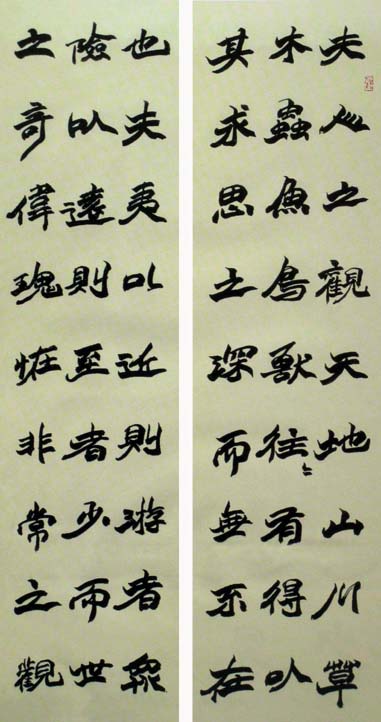 夫人之觀天地山川草
木蟲魚鳥獸往々有得以
其求思之深而無不在
也夫夷以近則游者眾
險以遠則至者少而世
之奇偉瑰恠非常之觀